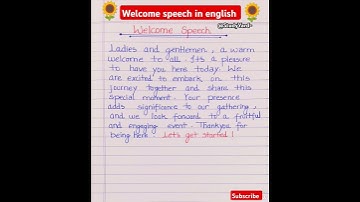 Welcome speech in english
@StudyYard-
Welcome Speech
Ladies and gentlemen, a warm
welcome to all. It's a pleasure
to have you here today. We
are excited to embark on this
journey together and share this
special moment. Your presence
adds significance to our gathering,
and we look forward to a fruitful
and engaging event. Thankyou for
being here. Let's get started!
Subscribe